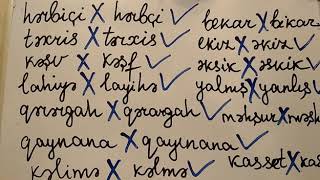 hərbiçi X hərbçi ✓
təxris X tərxis ✓
kəşv X kəşf ✓
lahiyə X layihə ✓
qərərgah X qərargah ✓
qaynana X qayınana ✓
kəlimə X kəlmə ✓
bekar X bikar
ekiz X əkiz ✓
əksik X əskik ✓
yalnış X yanlış ✓
məhşur X
kasset X kas